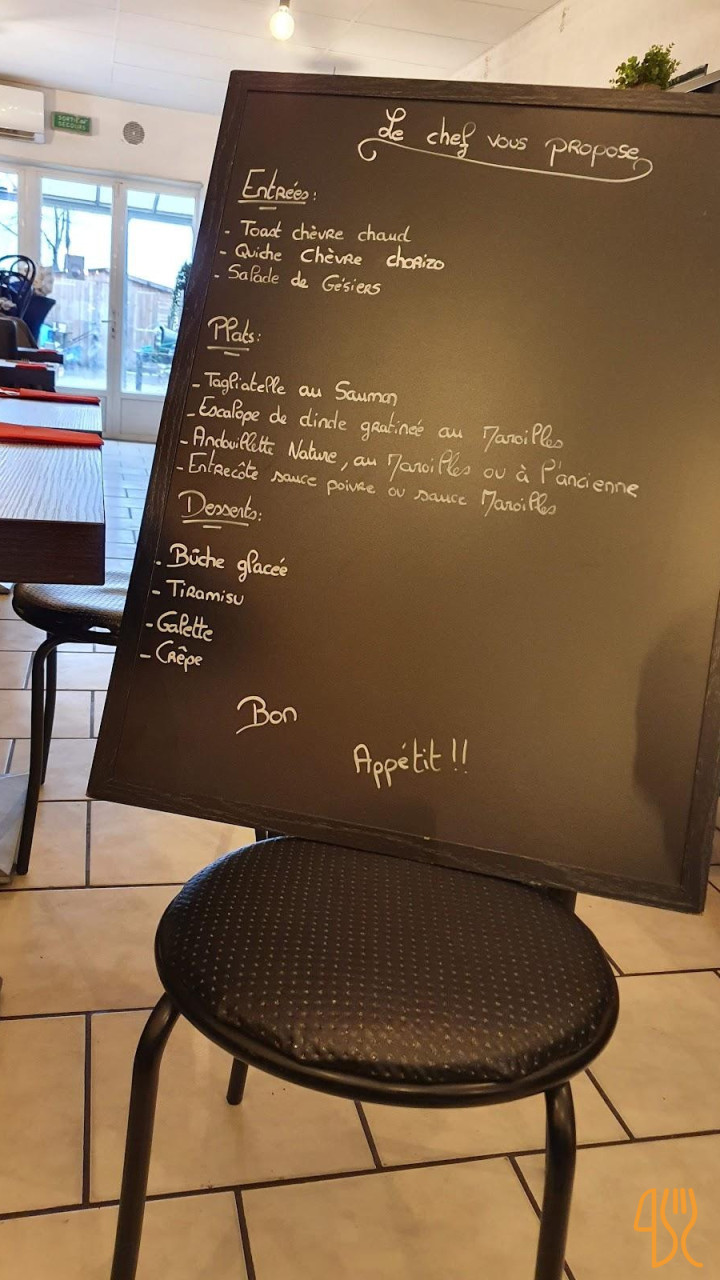 SORTIE DE
SECOURS
Le chef vous propose
Entrées:
- Toast chèvre chaud
- Quiche Chèvre chorizo
- Salade de Gésiers
Plats:
- Tagliatelle au Saumon
- Escalope de dinde gratinée au Maroilles
- Andouillette Nature, au Maroilles ou à l'ancienne
- Entrecôte sauce poivre ou sauce Maroilles
Desserts:
- Bûche glacée
- Tiramisu
- Galette
- Crêpe
Bon
Appétit !!